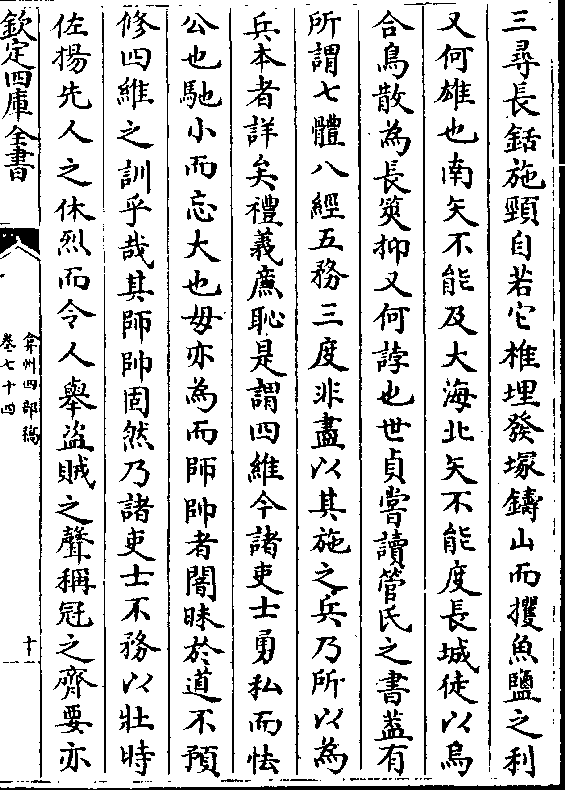 三尋長銛施頸自若它椎埋發塚鑄山而攫魚鹽之利
又何雄也南矢不能及大海北矢不能度長城徒以烏
合鳥散為長筴抑又何誖也世貞嘗讀管氏之書葢有
所謂七體八經五務三度非盡以其施之兵乃所以為
兵本者詳矣禮義廉恥是謂四維今諸吏士勇私而怯
公也馳小而忘大也毋亦為而師帥者闇昧於道不預
修四維之訓乎哉其師帥固然乃諸吏士不務以壯時
佐揚先人之休烈而令人舉盜賊之聲稱冠之齊要亦
欽定四庫全書
弇州四部稿
卷七十四
十